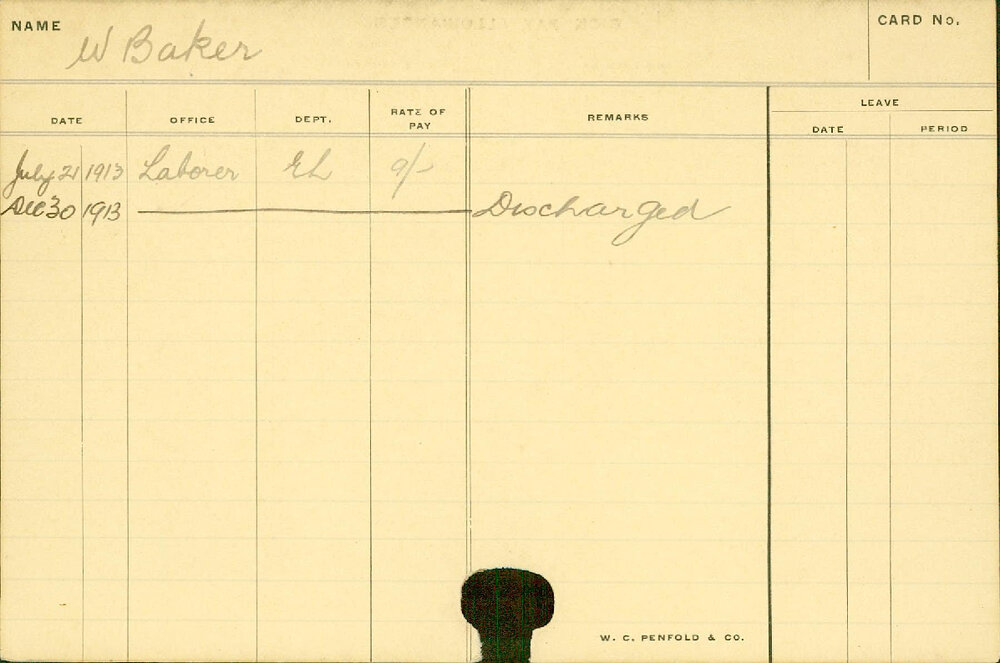 NAME W Baker CARD No.
DATE OFFICE DEPT. RATE OF PAY REMARKS LEAVE
DATE PERIOD
July 21 1913 Laborer EL 9/-
Dec 30 1913 Discharged
W. C. PENFOLD & CO.